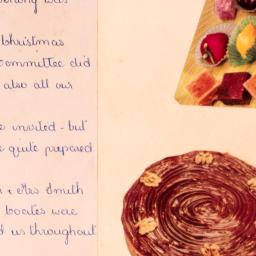 was
Christmas
Committee did
also all our
invited - but
quite prepared
& Mrs Smith
boates were
us throughout